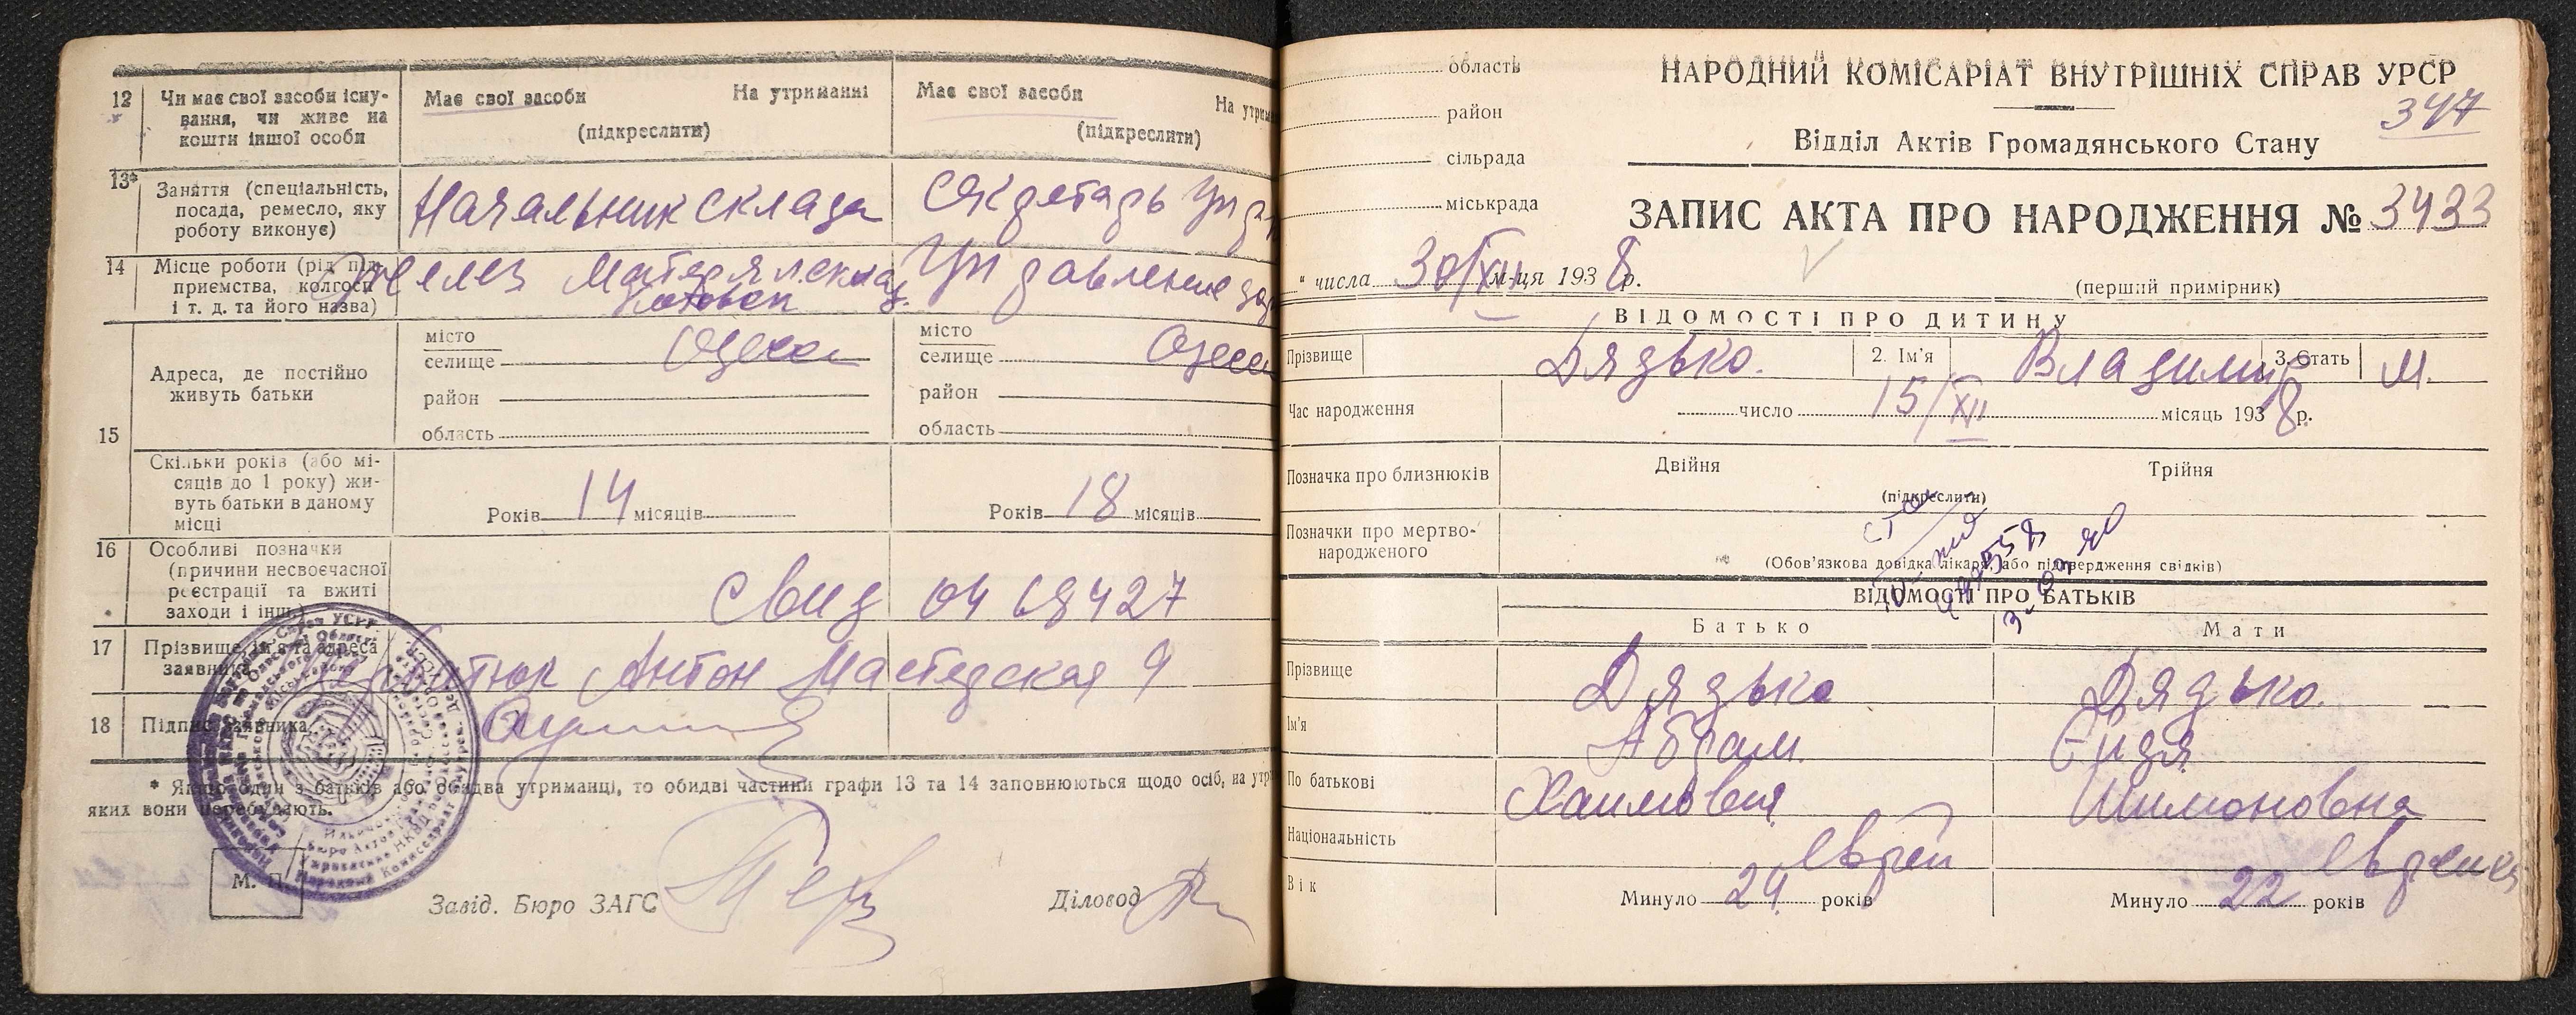 12 Чи має свої засоби існу-
вання, чи живе на
кошти іншої особи
Має свої засоби На утриманні
(підкреслити)
Має свої засоби На утрим
(підкреслити)
13* Заняття (спеціальність,
посада, ремесло, яку
роботу виконує)
Начальник склада
Секретарь Упр
14 Місце роботи (рід під-
приємства, колгосп
і т. д. та його назва)
Управление
15 Адреса, де постійно
живуть батьки
місто
селище Одесса
район
область
місто
селище Одесса
район
область
Скільки років (або мі-
сяців до 1 року) жи-
вуть батьки в даному
місці
Років 14 місяців
Років 18 місяців
16 Особливі позначки
(причини несвоєчасної
реєстрації та вжиті
заходи і інш.)
Свид
17 Прізвище, ім'я та адреса
заявника
Антон Мастерская 9
18 Підпис заявника
* Якщо один з батьків або обидва утриманці, то обидві частини графи 13 та 14 заповнюються щодо осіб, на утр
яких вони перебувають.
М. П.
Завід. Бюро ЗАГС
Діловод
область
район
сільрада
міськрада
НАРОДНИЙ КОМІСАРІАТ ВНУТРІШНІХ СПРАВ УРСР
347
Відділ Актів Громадянського Стану
ЗАПИС АКТА ПРО НАРОДЖЕННЯ № 3433
" числа 30/XII м-ця 1938 р.
(перший примірник)
ВІДОМОСТІ ПРО ДИТИНУ
Прізвище Дядько. 2. Ім'я Владимир 3. Стать М.
Час народження число 15/XII місяць 1938 р.
Позначка про близнюків Двійня Трійня
(підкреслити)
Позначки про мертво-
народженого
(Обов'язкова довідка лікаря, або підтвердження свідків)
ВІДОМОСТІ ПРО БАТЬКІВ
Батько Мати
Прізвище Дядько Дядько.
Ім'я Абрам. Ейдя
По батькові Хаимович Шимоновна
Національність еврей еврейка
Вік Минуло 24 років Минуло 22 років